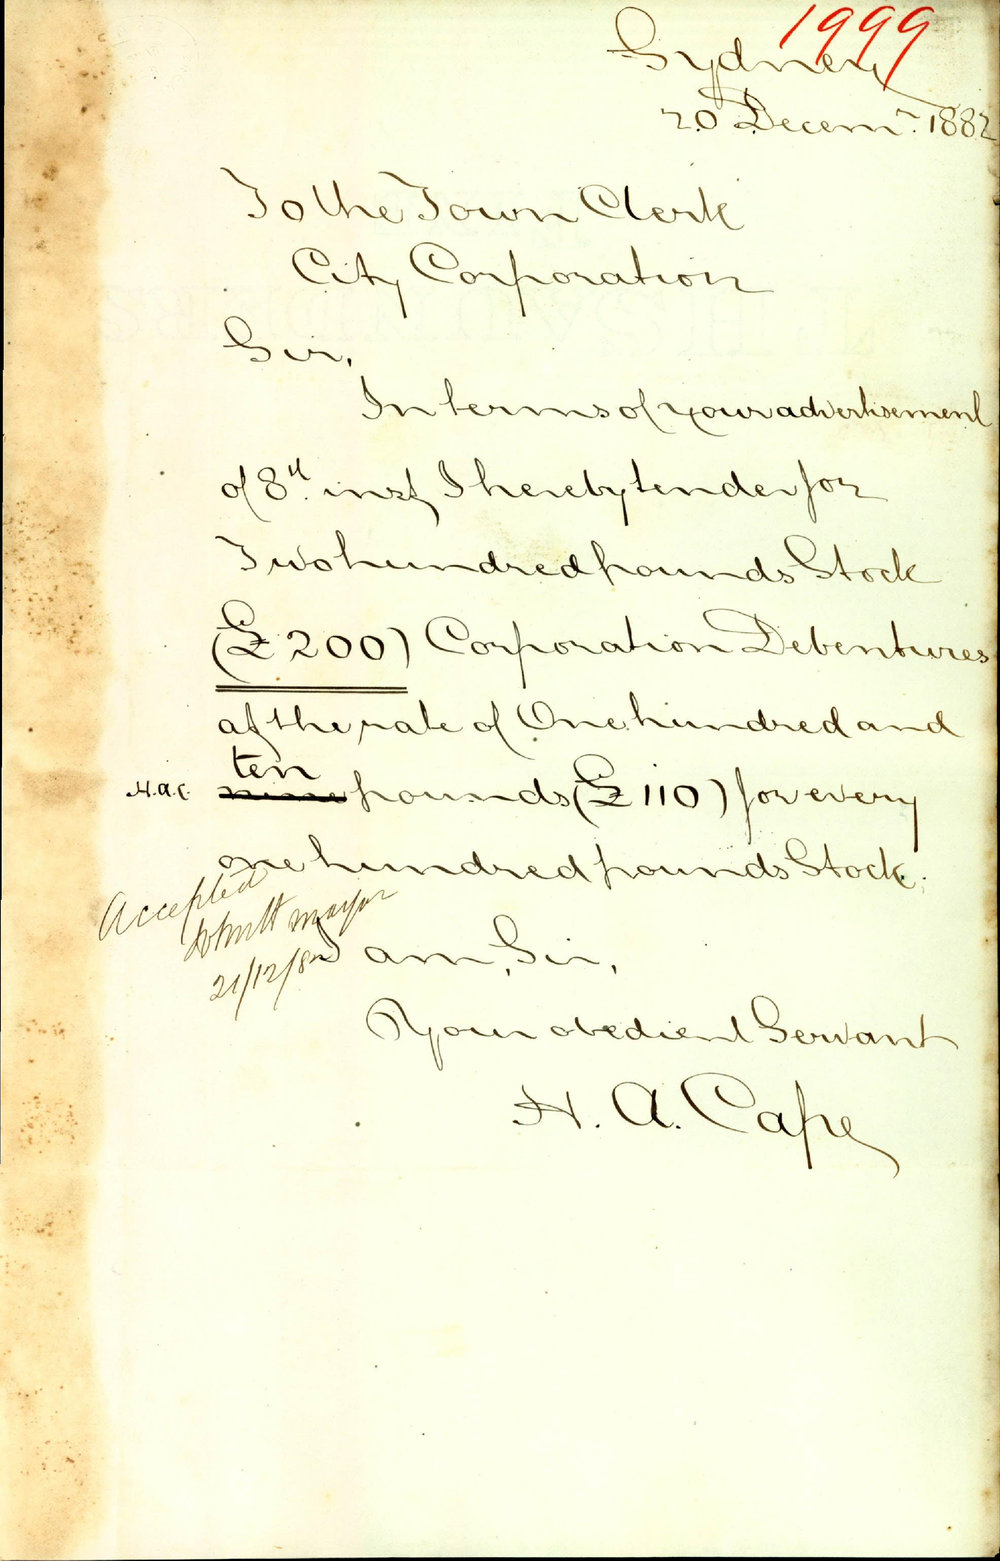 1999
Sydney
20 Decemr. 1882
To the Town Clerk
City Corporation
Sir,
In terms of your advertisement
of 8th inst I hereby tender for
Two hundred pounds Stock
(£200) Corporation Debentures
at the rate of One hundred and
ten
H.A.C. nine pounds (£110) for every
one hundred pounds Stock.
Accepted
Mayor
21/12/82
I am, Sir,
Your obedient Servant
H. A. Cape